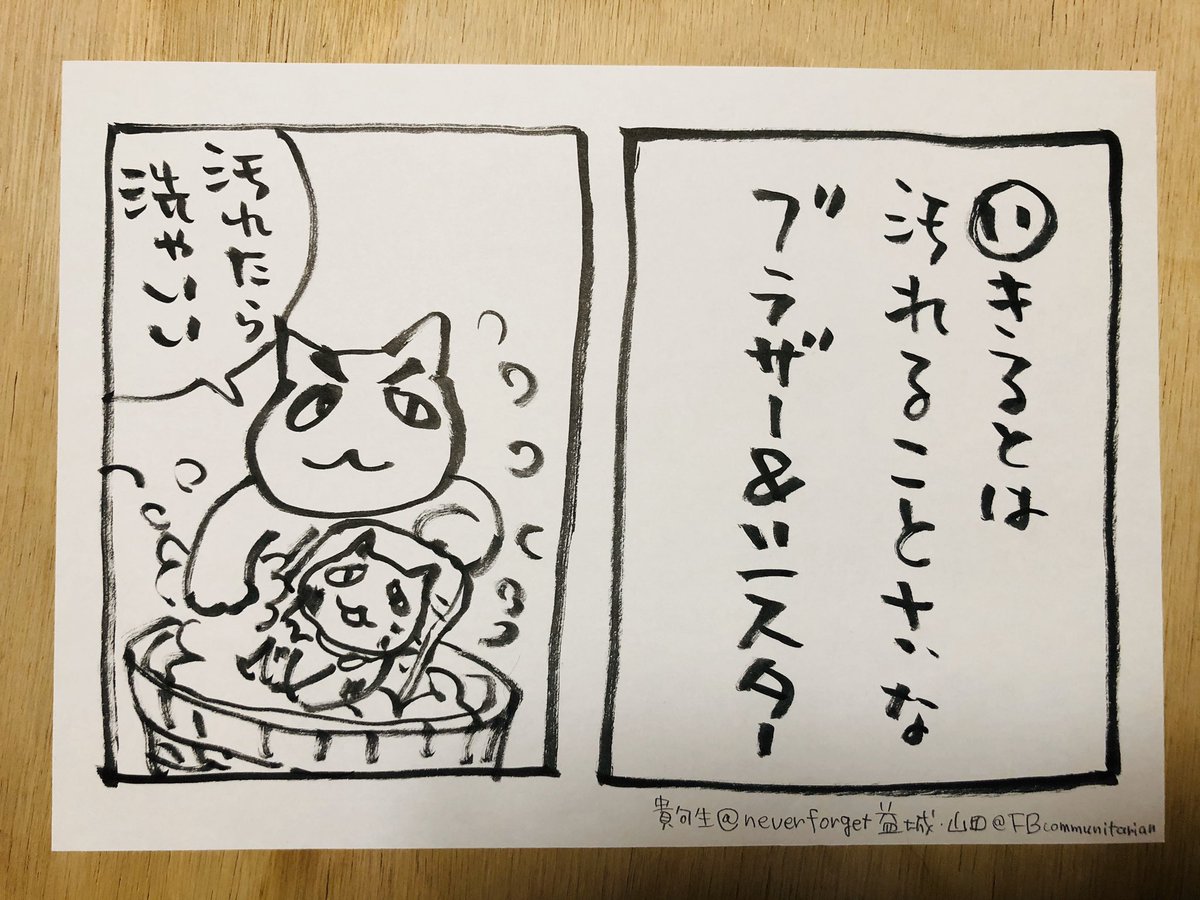 ㋑きるとは
汚れることだな
ブラザー&シスター
汚れたら
洗やいい
貴句生@neverforget益城・山田@FBcommunitarian